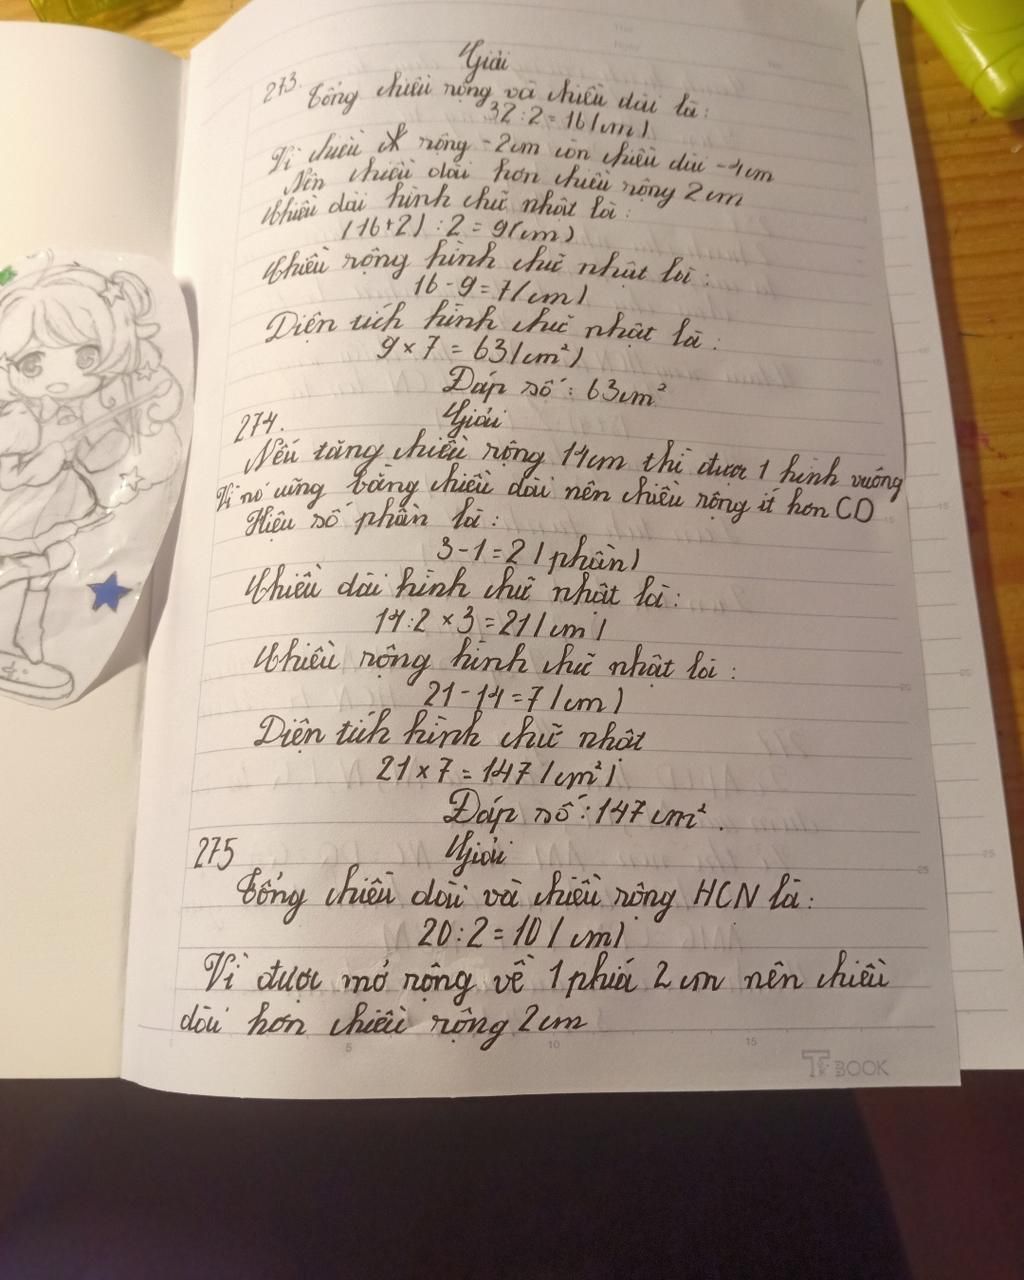 Giải
273. Tổng chiều rộng và chiều dài là:
32 : 2 = 16 (cm)
Vì chiều rộng -2cm còn chiều dài -4cm
Nên chiều dài hơn chiều rộng 2 cm
Chiều dài hình chữ nhật là:
(16+2) : 2 = 9(cm)
Chiều rộng hình chữ nhật là:
16 - 9 = 7(cm)
Diện tích hình chữ nhật là:
9 × 7 = 63(cm²)
Đáp số: 63cm²
274. Giải
Nếu tăng chiều rộng 14cm thì được 1 hình vuông
Vì nó cũng bằng chiều dài nên chiều rộng ít hơn CD
Hiệu số phần là:
3-1 = 2 (phần)
Chiều dài hình chữ nhật là:
14:2 × 3 = 21(cm)
Chiều rộng hình chữ nhật là:
21 - 14 = 7 (cm)
Diện tích hình chữ nhật
21 × 7 = 147 (cm²)
Đáp số: 147 cm².
275 Giải
Tổng chiều dài và chiều rộng HCN là:
20 : 2 = 10 (cm)
Vì được mở rộng về 1 phía 2 cm nên chiều
dài hơn chiều rộng 2cm
5 10 15
BOOK